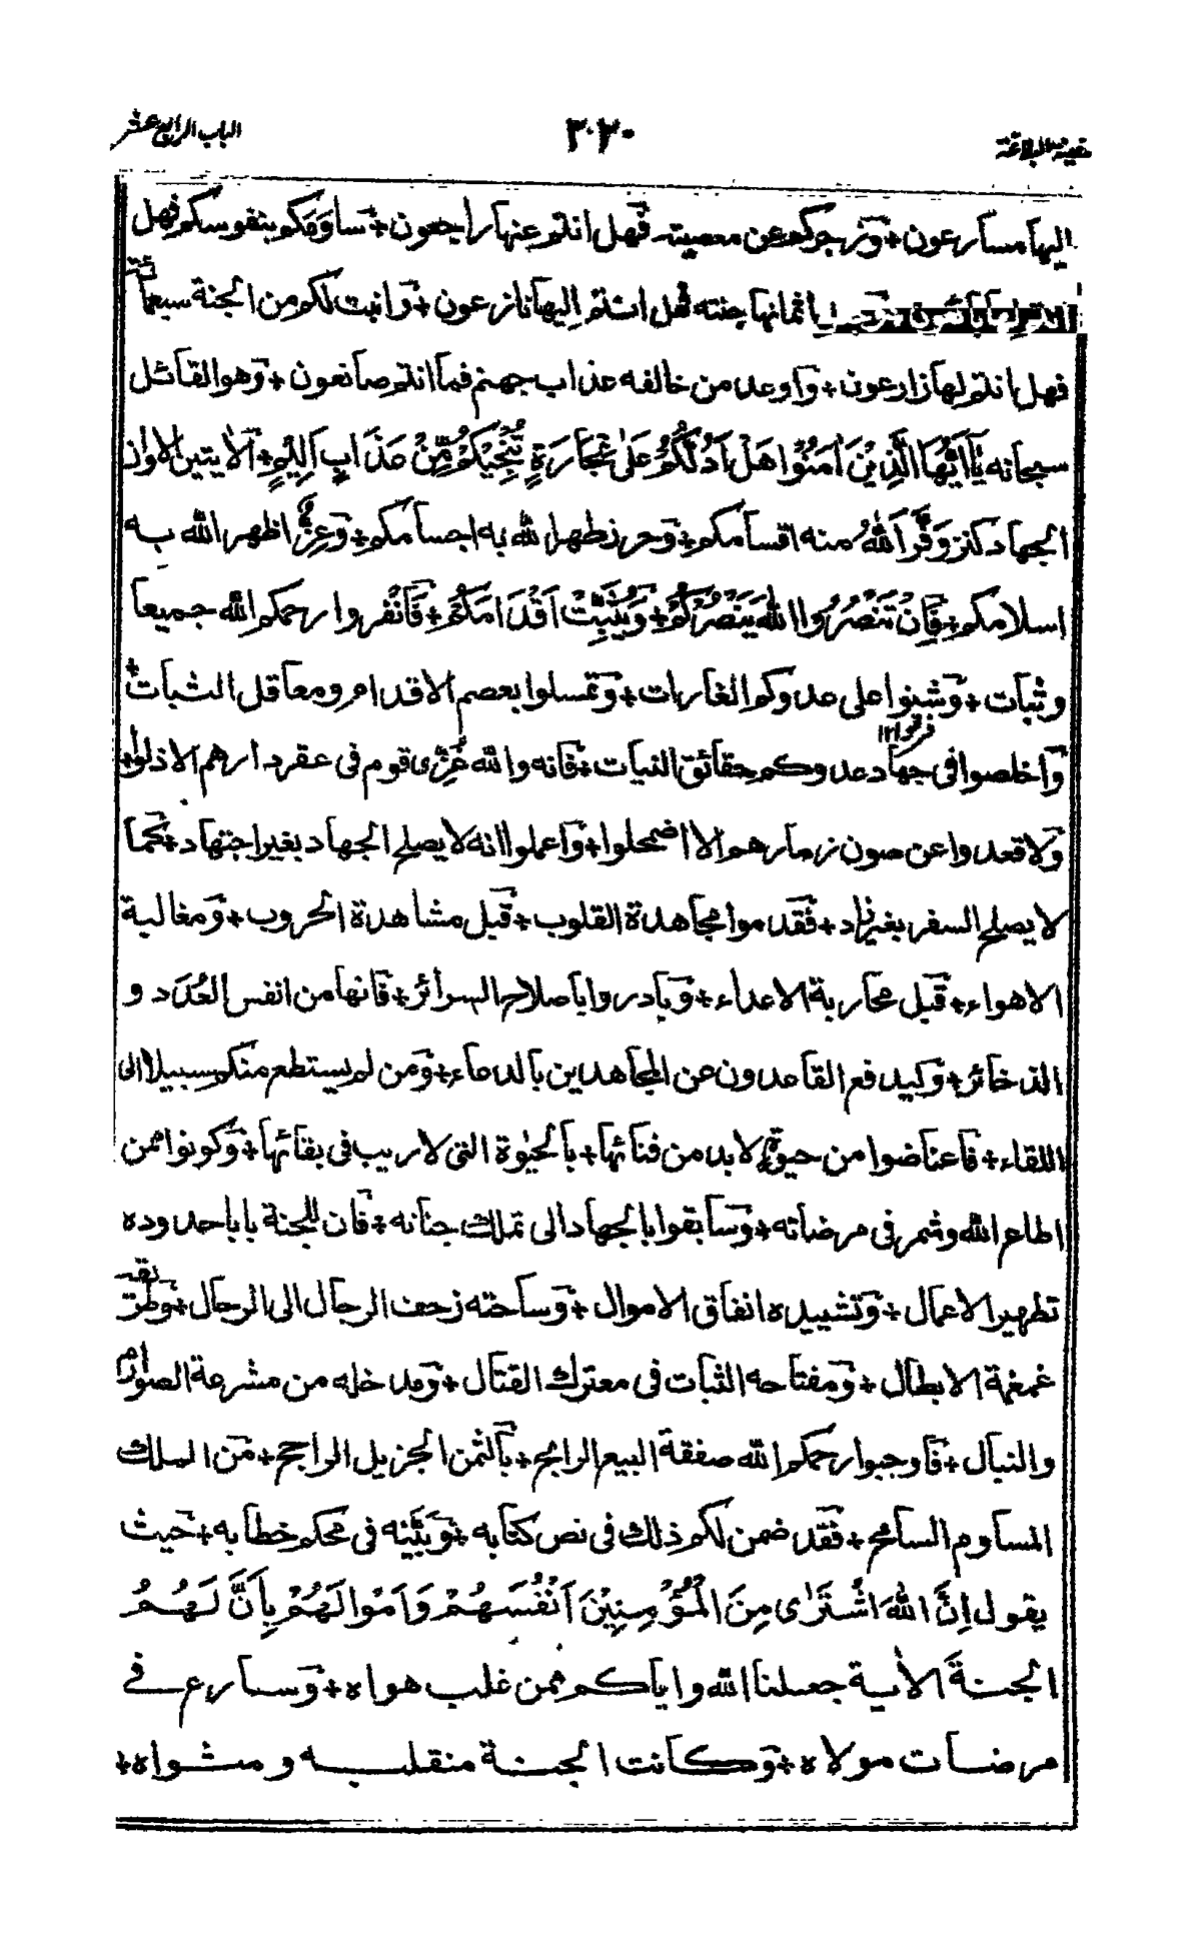 الباب الرابع عشر
٣٠٢٠
نفحة البلاغة
اليها مسارعون + وزجركم عن معصيته فهل انتم عنها راجعون + وساومكم بنفوسكم فهل
باثمانها جنته فهل انتم اليها نازعون + وانبت لكم من الجنة سبعمائة
فهل انتم لها زارعون + واوعد من خالفه عذاب جهنم فما انتم صانعون + وهو القائل
سبحانه يَا اَيُّهَا الَّذِيْنَ اٰمَنُوْا هَلْ اَدُلُّكُمْ عَلٰى تِجَارَةٍ تُنْجِيْكُمْ مِّنْ عَذَابٍ اَلِيْمٍ + الآيتين الا وان
الجهاد كنز وَفَّرَ اللّٰهُ منه اقسامكم + وحرز طهر الله به اجسامكم + وَعِزٌّ اظهر الله به
اسلامكم + فَاِنْ تَنْصُرُوا اللهَ يَنْصُرْكُمْ + وَيُثَبِّتْ اَقْدَامَكُمْ + فَانْفروا رحمكم الله جميعا
وثبات + وشنوا على عدوكم الغارات + وتمسكوا بعصم الاقدام ومعاقل الثبات +
واخلصوا فى جهاد عدوكم حقائق النيات + فانه والله ما غُزِى قوم فى عقر دارهم الا ذلوا +
ولا قعدوا عن صون زمارهم الا اضمحلوا + واعملوا انه لا يصلح الجهاد بغير اجتهاد + كما
لا يصلح السفر بغير زاد + فقدموا مجاهدة القلوب + قبل مشاهدة الحروب + ومغالبة
الاهواء + قبل محاربة الاعداء + وبادروا باصلاح السرائر + فانها من انفس العُدَد و
الذخائر + وكيدفع القاعدون عن المجاهدين بالدعاء + ومن لم يستطع منكم سبيلا الى
اللقاء + فاعتاضوا من حيوةٍ لا بد من فنائها + بالحيٰوة التى لا ريب فى بقائها + وكونوا ممن
اطاع الله وشمر فى مرضاته + وسابقوا بالجهاد الى تملك جنانه + فان للجنة بابا حدوده
تطهير الاعمال + وتشييده انفاق الاموال + وساحته زحف الرجال الى الرجال + وطريقه
غمغمة الابطال + ومفتاحه الثبات فى معترك القتال + ومدخله من مشرعة الصوارم
والنبال + فاوجبوا رحمكم الله صفقة البيع الرابح + بالثمن الجزيل الراجح + من الملك
المساوم السامح + فقد ضمن لكم ذلك فى نص كتابه + وبَيَّنه فى محكم خطابه + حيث
يقول اِنَّ اللهَ اشْتَرٰى مِنَ الْمُؤْمِنِيْنَ اَنْفُسَهُمْ وَاَمْوَالَهُمْ بِاَنَّ لَهُمُ
الجنةَ الآية جعلنا الله واياكم ممن غلب هواه + وسارع فى
مرضات مولاه + وكانت الجنة منقلبه ومثواه +